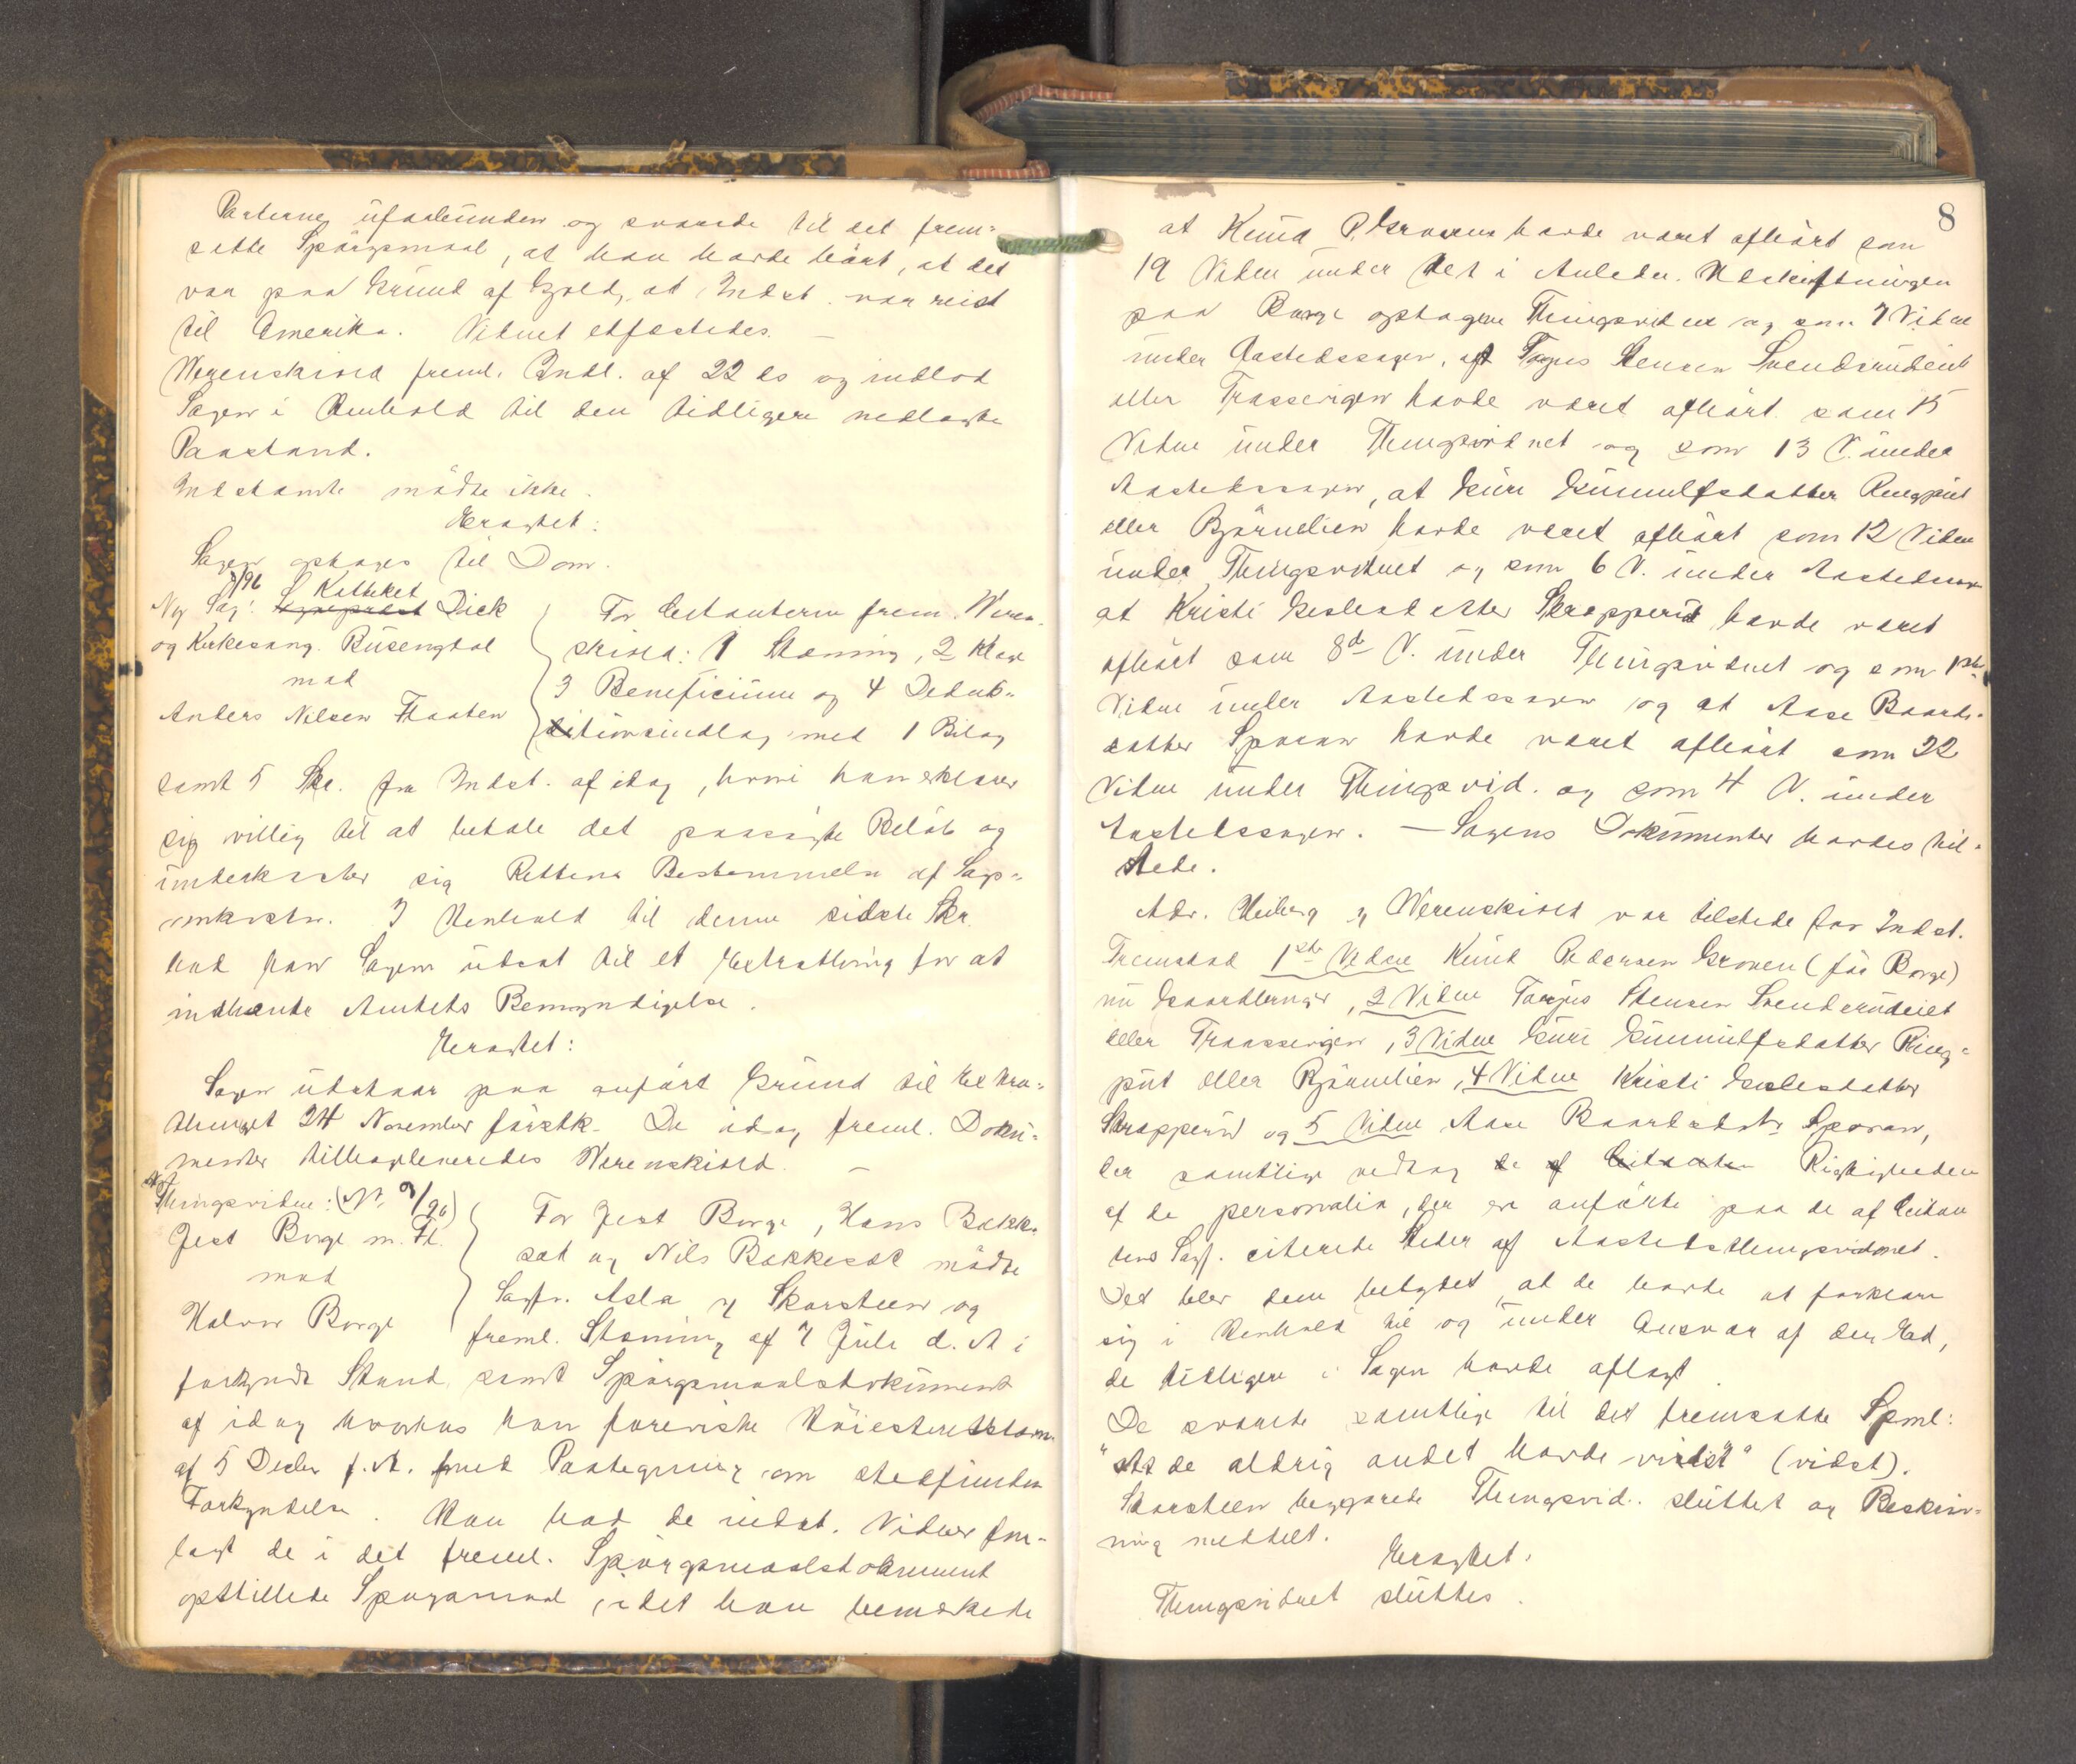 Parterne uforbunden og svarede til det frem-
satte Spörgsmaal, at han havde hört, at det
var paa Grund af Gjeld, at Indst. var reist
til Amerika. Vidnet edfæstedes. –
Werenskiold freml. Indl. af 22 ds og indlod
Sagen i Henhold til den tidligere nedlagte
Paastand.
Indstævnte mødte ikke.
Eragtet:
Sagen optages til Dom.
Ny Sag: 7/96 S Katteket Dick
og Kirkesang. Busengdal
mod
Anders Nilsen Flaaten
For Citanterne frem. Weren-
skiold: 1 Stævning, 2 Klage
3 Beneficium og 4 Deduk-
tionsindlag med 1 Bilag
samt 5 Skr. fra Indst. af idag, hvori han erklærer
sig villig til at betale det paasögte Belöb og
underkaster sig Rettens Bestemmelse af Sags-
omkostn. I Henhold til denne sidste Skr.
bad han Sagen udsat til et Extrathing for at
indhente Amtets Bemyndigelse.
Eragtet:
Sagen udstaar paa anfört Grund til Extra-
thinget 24 November förstk. De idag freml. Doku-
menter tilbageleveredes Werenskiold. –
Thingsvidne: (Nr. 9/96)
Jest Borge m. Fl.
mod
Halvor Borge
For Jest Borge, Hans Bakke-
sat og Nils Bakkesat mödte
Sagfr. Asla og Skarsteen og
freml. Stævning af 7 Juli d. A i
forkyndt Stand, samt Spörgsmaalsdokument
af idag hvorhos han foreviste Höiesteretsstævn.
af 5 Decbr f. A. med Paategning om stedfunden
Forkyndelse. Han bad de indst. Vidner fore-
lagt de i det freml. Spörgsmaalsdokument
opstillede Spörgsmaal, idet han bemærkede
8
at Knud P. Groven havde været afhört som
19 Vidne under det i Anledn. Udskiftningen
paa Borge optagne Thingsvidne og som 7 Vidne
under Aastedssagen, at Torjus Stensen Svendsrudeiet
eller Traaseigen havde været afhört som 15
Vidne under Thingsvidnet og som 13 V. under
Aastedssagen, at Guri Gunnulfsdatter Ringput
eller Bjørnelien havde været afhört som 12 Vidne
under Thingsvidnet og som 6 V. under Aastedssagen
at Kristi Gislesdatter Skrapperud havde været
afhört som 8de V. under Thingsvidnet og som 1ste
Vidne under Aastedssagen og at Aase Baards-
datter Sporan havde været afhört som 22
Vidne under Thingsvid. og som 4 V. under
Aastedssagen. – Sagens Dokumenter havdes til-
stede.
Adv. Heiberg og Werenskiold var tilstede for Indst.
Fremstod 1ste Vidne Knud Pedersen Groven (för Borge)
nu Gaardbruger, 2 Vidne Torjus Stensen Svendsrudeiet
eller Traaseigen, 3 Vidne Guri Gunnulfsdatter Ring-
put eller Bjørnelien, 4 Vidne Kristi Gislesdatter
Skrapperud og 5 Vidne Aase Baardsdatr Sporan,
der samtlige vedtog Rigtigheden
af de personalia, der er anförte paa de af Citan
tens Sagf. citerede Steder af Aastedsthingsvidnet.
Det blev dem betydet, at de havde at forklare
sig i Henhold til og under Ansvar af den Ed,
de tidligere i Sagen havde aflagt.
De svarede samtlige til det fremsatte Spml:
"At de aldrig andet havde vidst" (vidst).
Skarsteen begjærede Thingsvid. sluttet og Beskriv-
ning meddelt.
Eragtet:
Thingsvidnet sluttes.